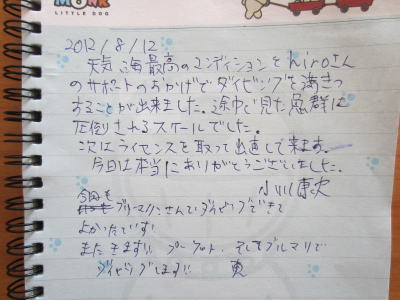 MONK
LITTLE DOG
2012/8/12
天気、海最高のコンディションとhiroさん
のサポートのおかげでダイビングを満きつ
することが出来ました。途中で見た魚群は
圧倒されるスケールでした。
次はライセンスを取って出直して来ます。
今日は本当にありがとうございました。
小川 康次
今回も
ブリーマリンさんでダイビングできて
よかったです!
またきます!! プーケット、そしてブルマリで
ダイビングします!!